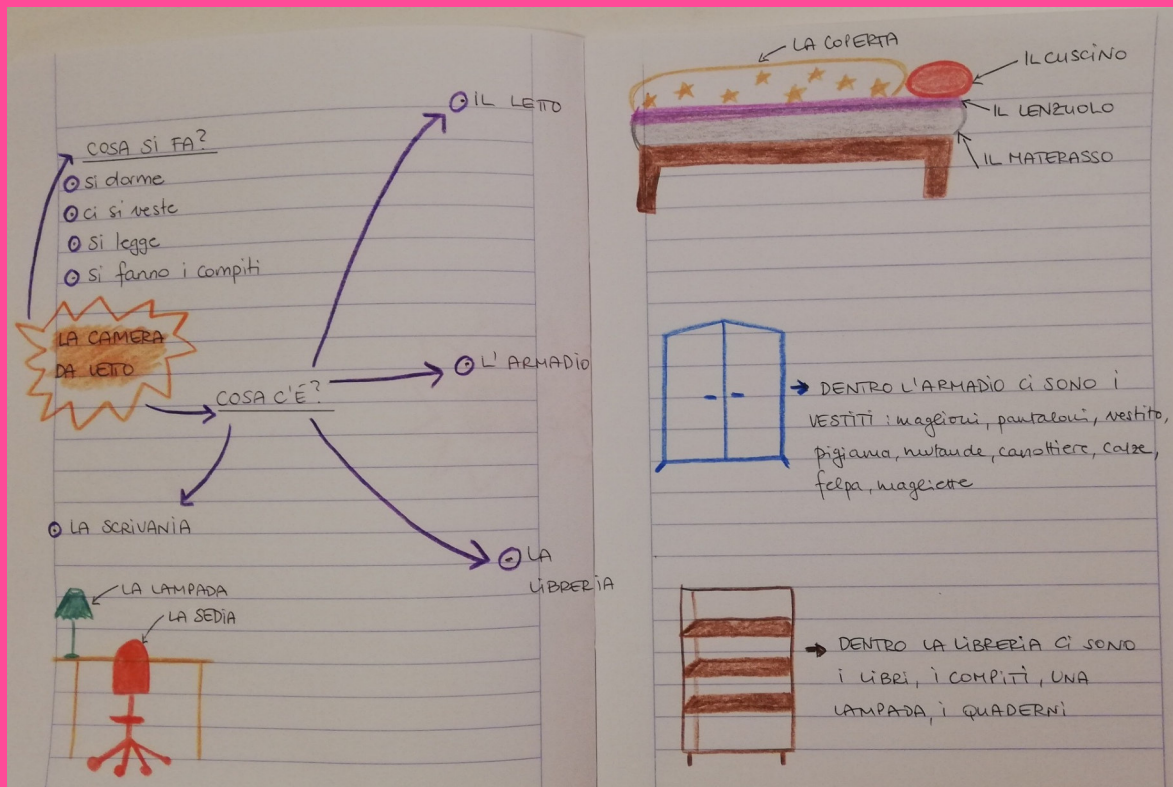 COSA SI FA?
si dorme
ci si veste
si legge
si fanno i compiti
LA CAMERA
DA LETTO
COSA C'È?
IL LETTO
L'ARMADIO
LA SCRIVANIA
LA
LIBRERIA
LA LAMPADA
LA SEDIA
LA COPERTA
IL CUSCINO
IL LENZUOLO
IL MATERASSO
DENTRO L'ARMADIO CI SONO I
VESTITI : maglioni, pantaloni, vestito,
pigiama, mutande, canottiere, calze,
felpa, magliette
DENTRO LA LIBRERIA CI SONO
I LIBRI, I COMPITI, UNA
LAMPADA, I QUADERNI